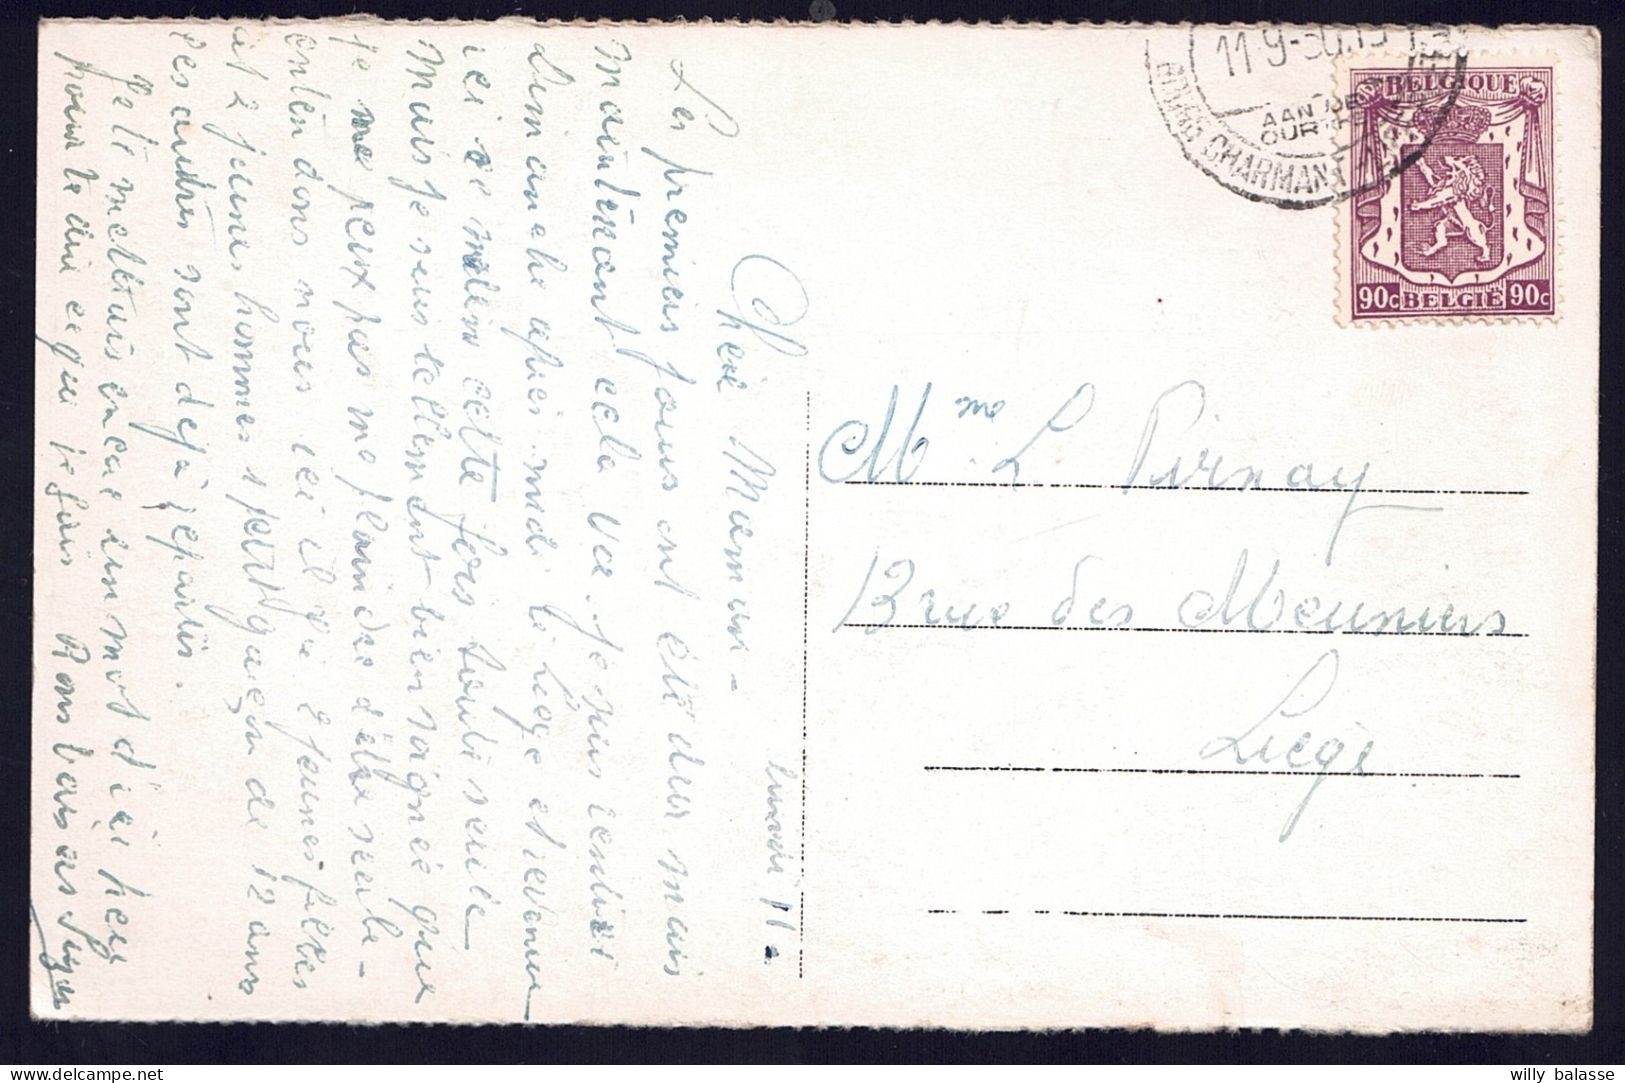 lundi 11.
Chère Maman -
Les premiers jours ont été durs mais
maintenant cela va. Je suis rentré
Dimanche après-midi Liège et revenu
ici ce matin cette fois toute seule
Mais je suis tellement bien soignée que
je ne peux pas me plaindre d'être seule -
entendons nous ici il y a 2 jeunes filles
et 2 jeunes hommes + petit garçon de 12 ans
les autres sont déjà repartis.
Je te mettrais encore un mot d'ici
pour te dire ce que je fais Bons baisers
11-9-50
AAN DE
OURTHE
CHARMANT
BELGIQUE
90c BELGIE 90c
Mme L Pirnay
13 rue des Meuniers
Liège
willy balasse